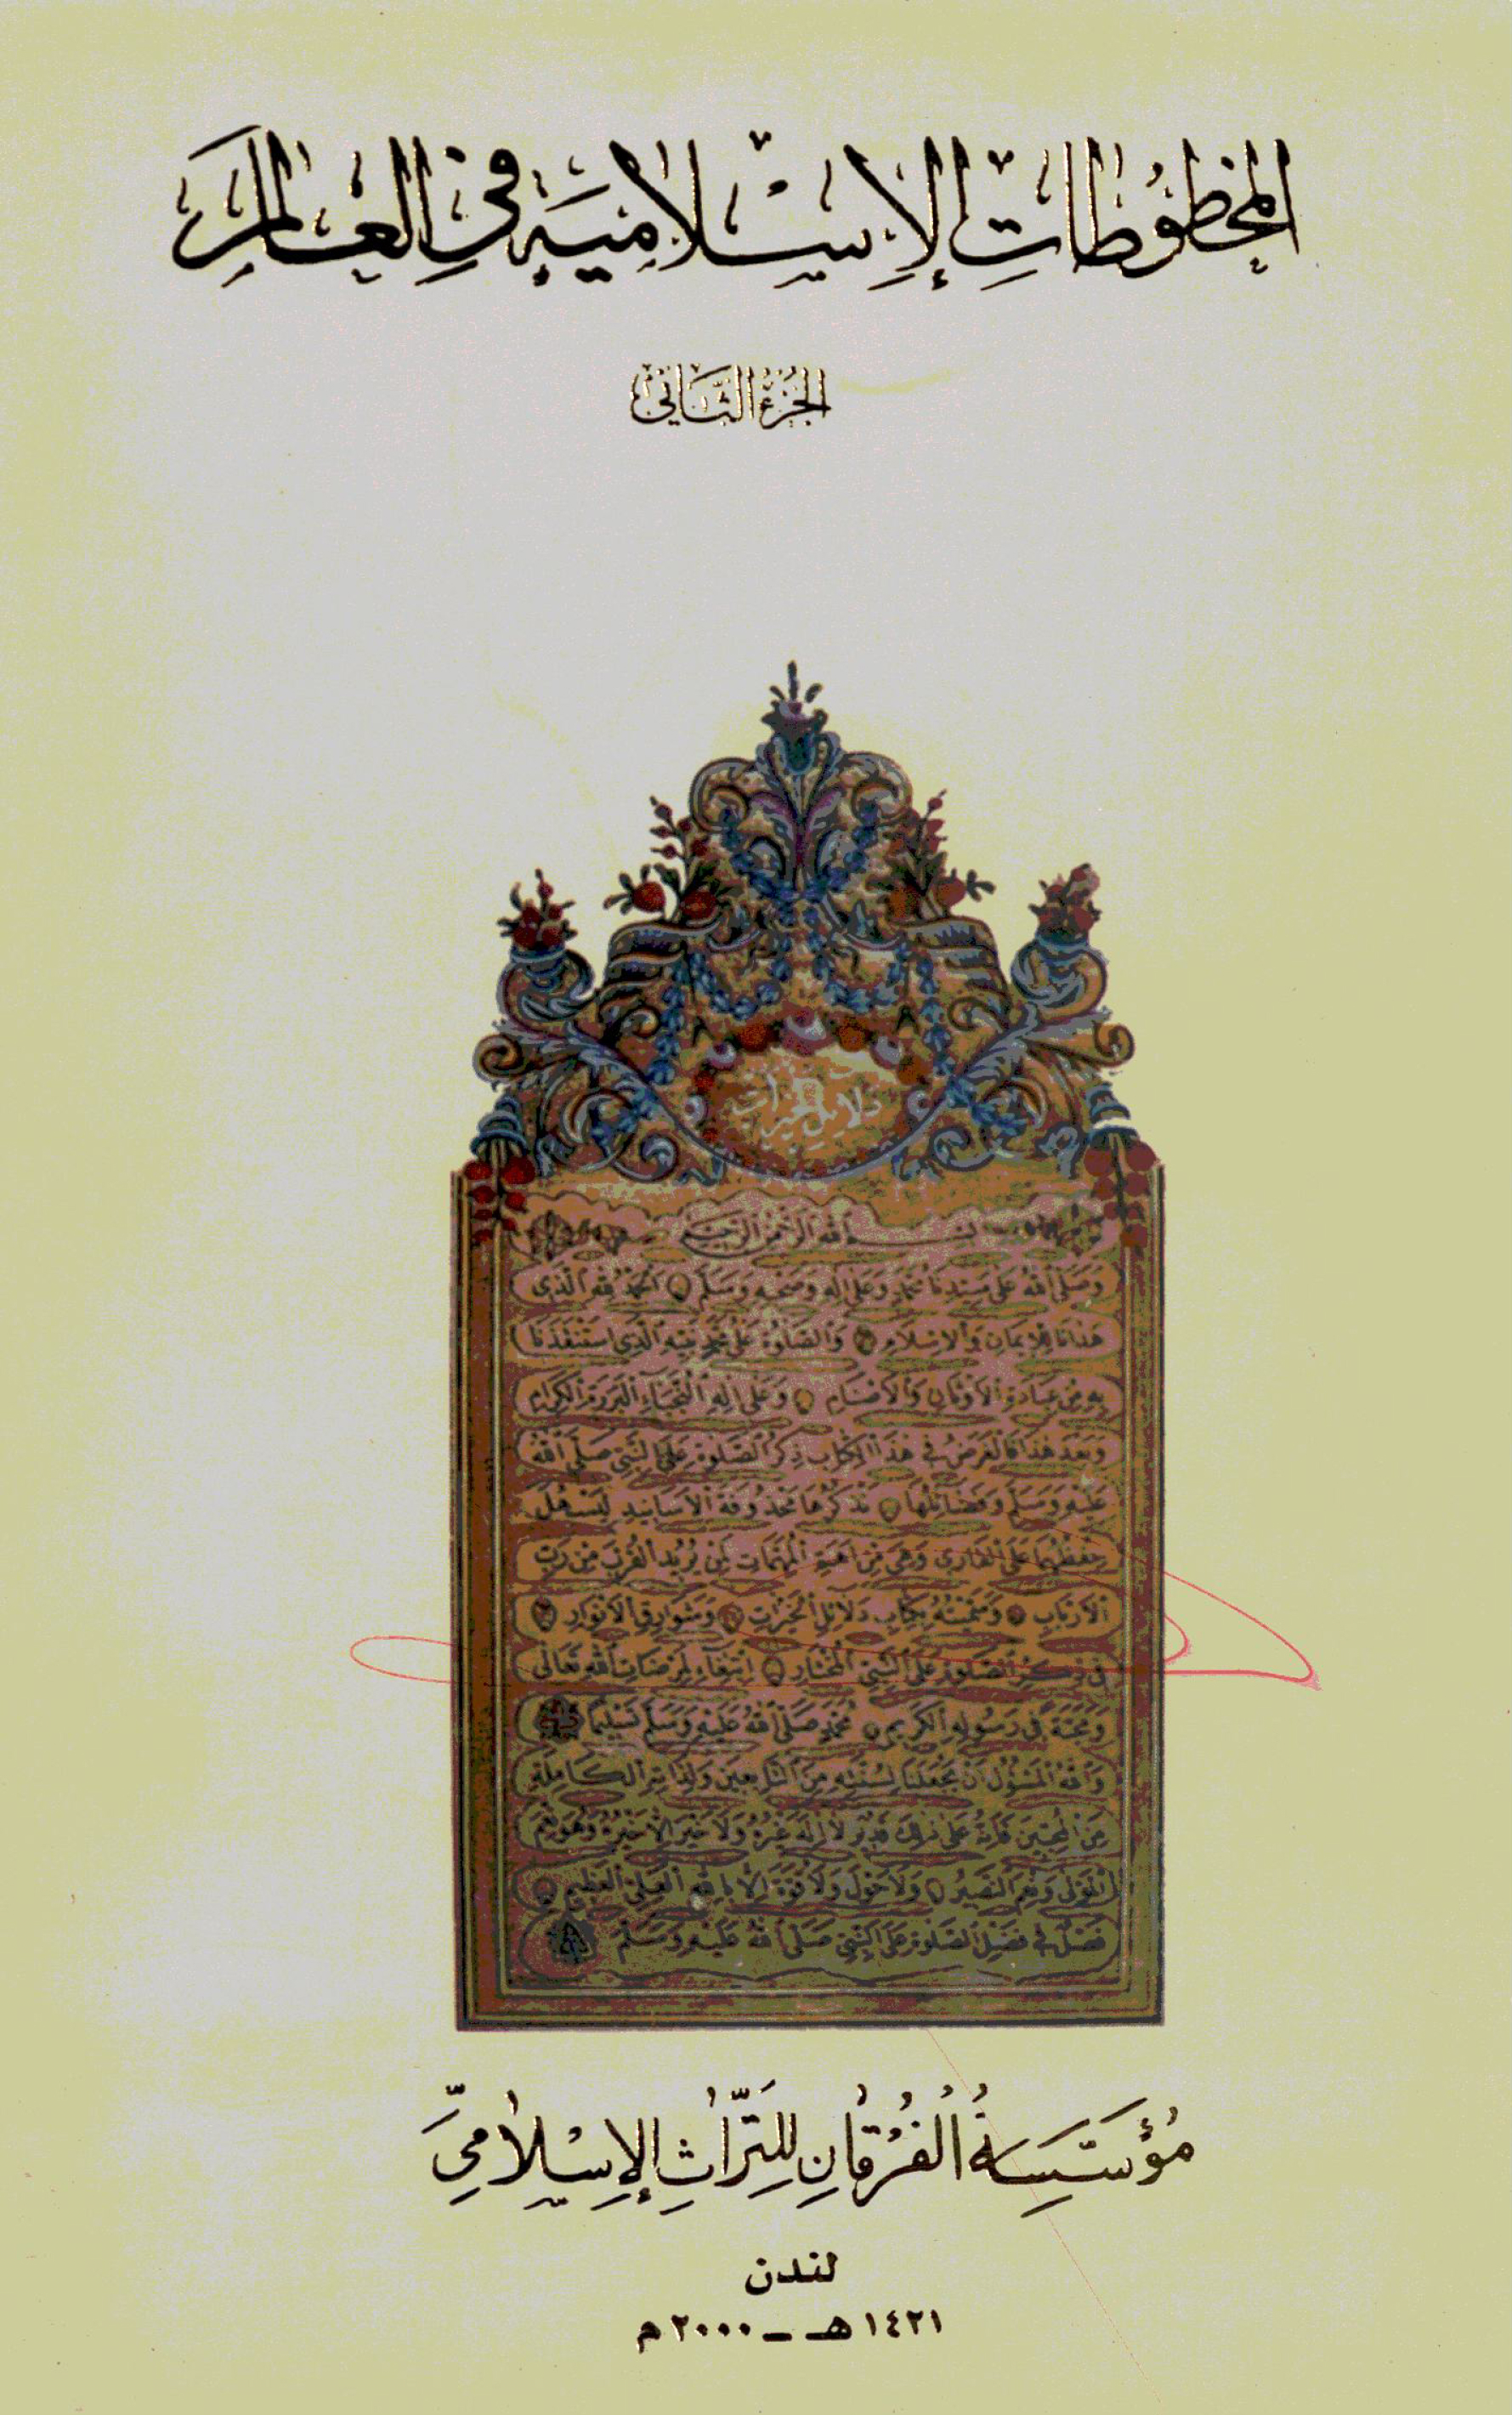 المخطوطات الإسلامية في العالم
الجزء الثاني
دلائل الخيرات
بسم الله الرحمن الرحيم
وصلى الله على سيدنا محمد وعلى اله وصحبه وسلم الحمد لله الذى
هدانا للإيمان والإسلام والصلوة على محمد نبيه الذى استنقذنا
به من عبادة الأوثان والأصنام وعلى اله النجباء البررة الكرام
وبعد هذا فالغرض في هذا الكتاب ذكر الصلوة على النبي صلى الله
عليه وسلم وفضائلها نذكرها محذوفة الأسانيد ليسهل
حفظها على القارئ وهي من أهم المهمات لمن يريد القرب من رب
الأرباب وسميته بكتاب دلائل الخيرات وشوارق الأنوار
في ذكر الصلوة على النبي المختار ابتغاء لمرضات الله تعالى
ومحبة في رسوله الكريم محمد صلى الله عليه وسلم تسليما
والله المسئول أن يجعلنا لسنته من التابعين ولذاته الكاملة
من المحبين فانه على ذلك قدير لا اله غيره ولا خير الا خيره وهو نعم
المولى ونعم النصير ولا حول ولا قوة إلا بالله العلى العظيم
فصل في فضل الصلوة على النبي صلى الله عليه وسلم
مؤسسة الفرقان للتراث الإسلامي
لندن
١٤٢١هـ - ٢٠٠٠م